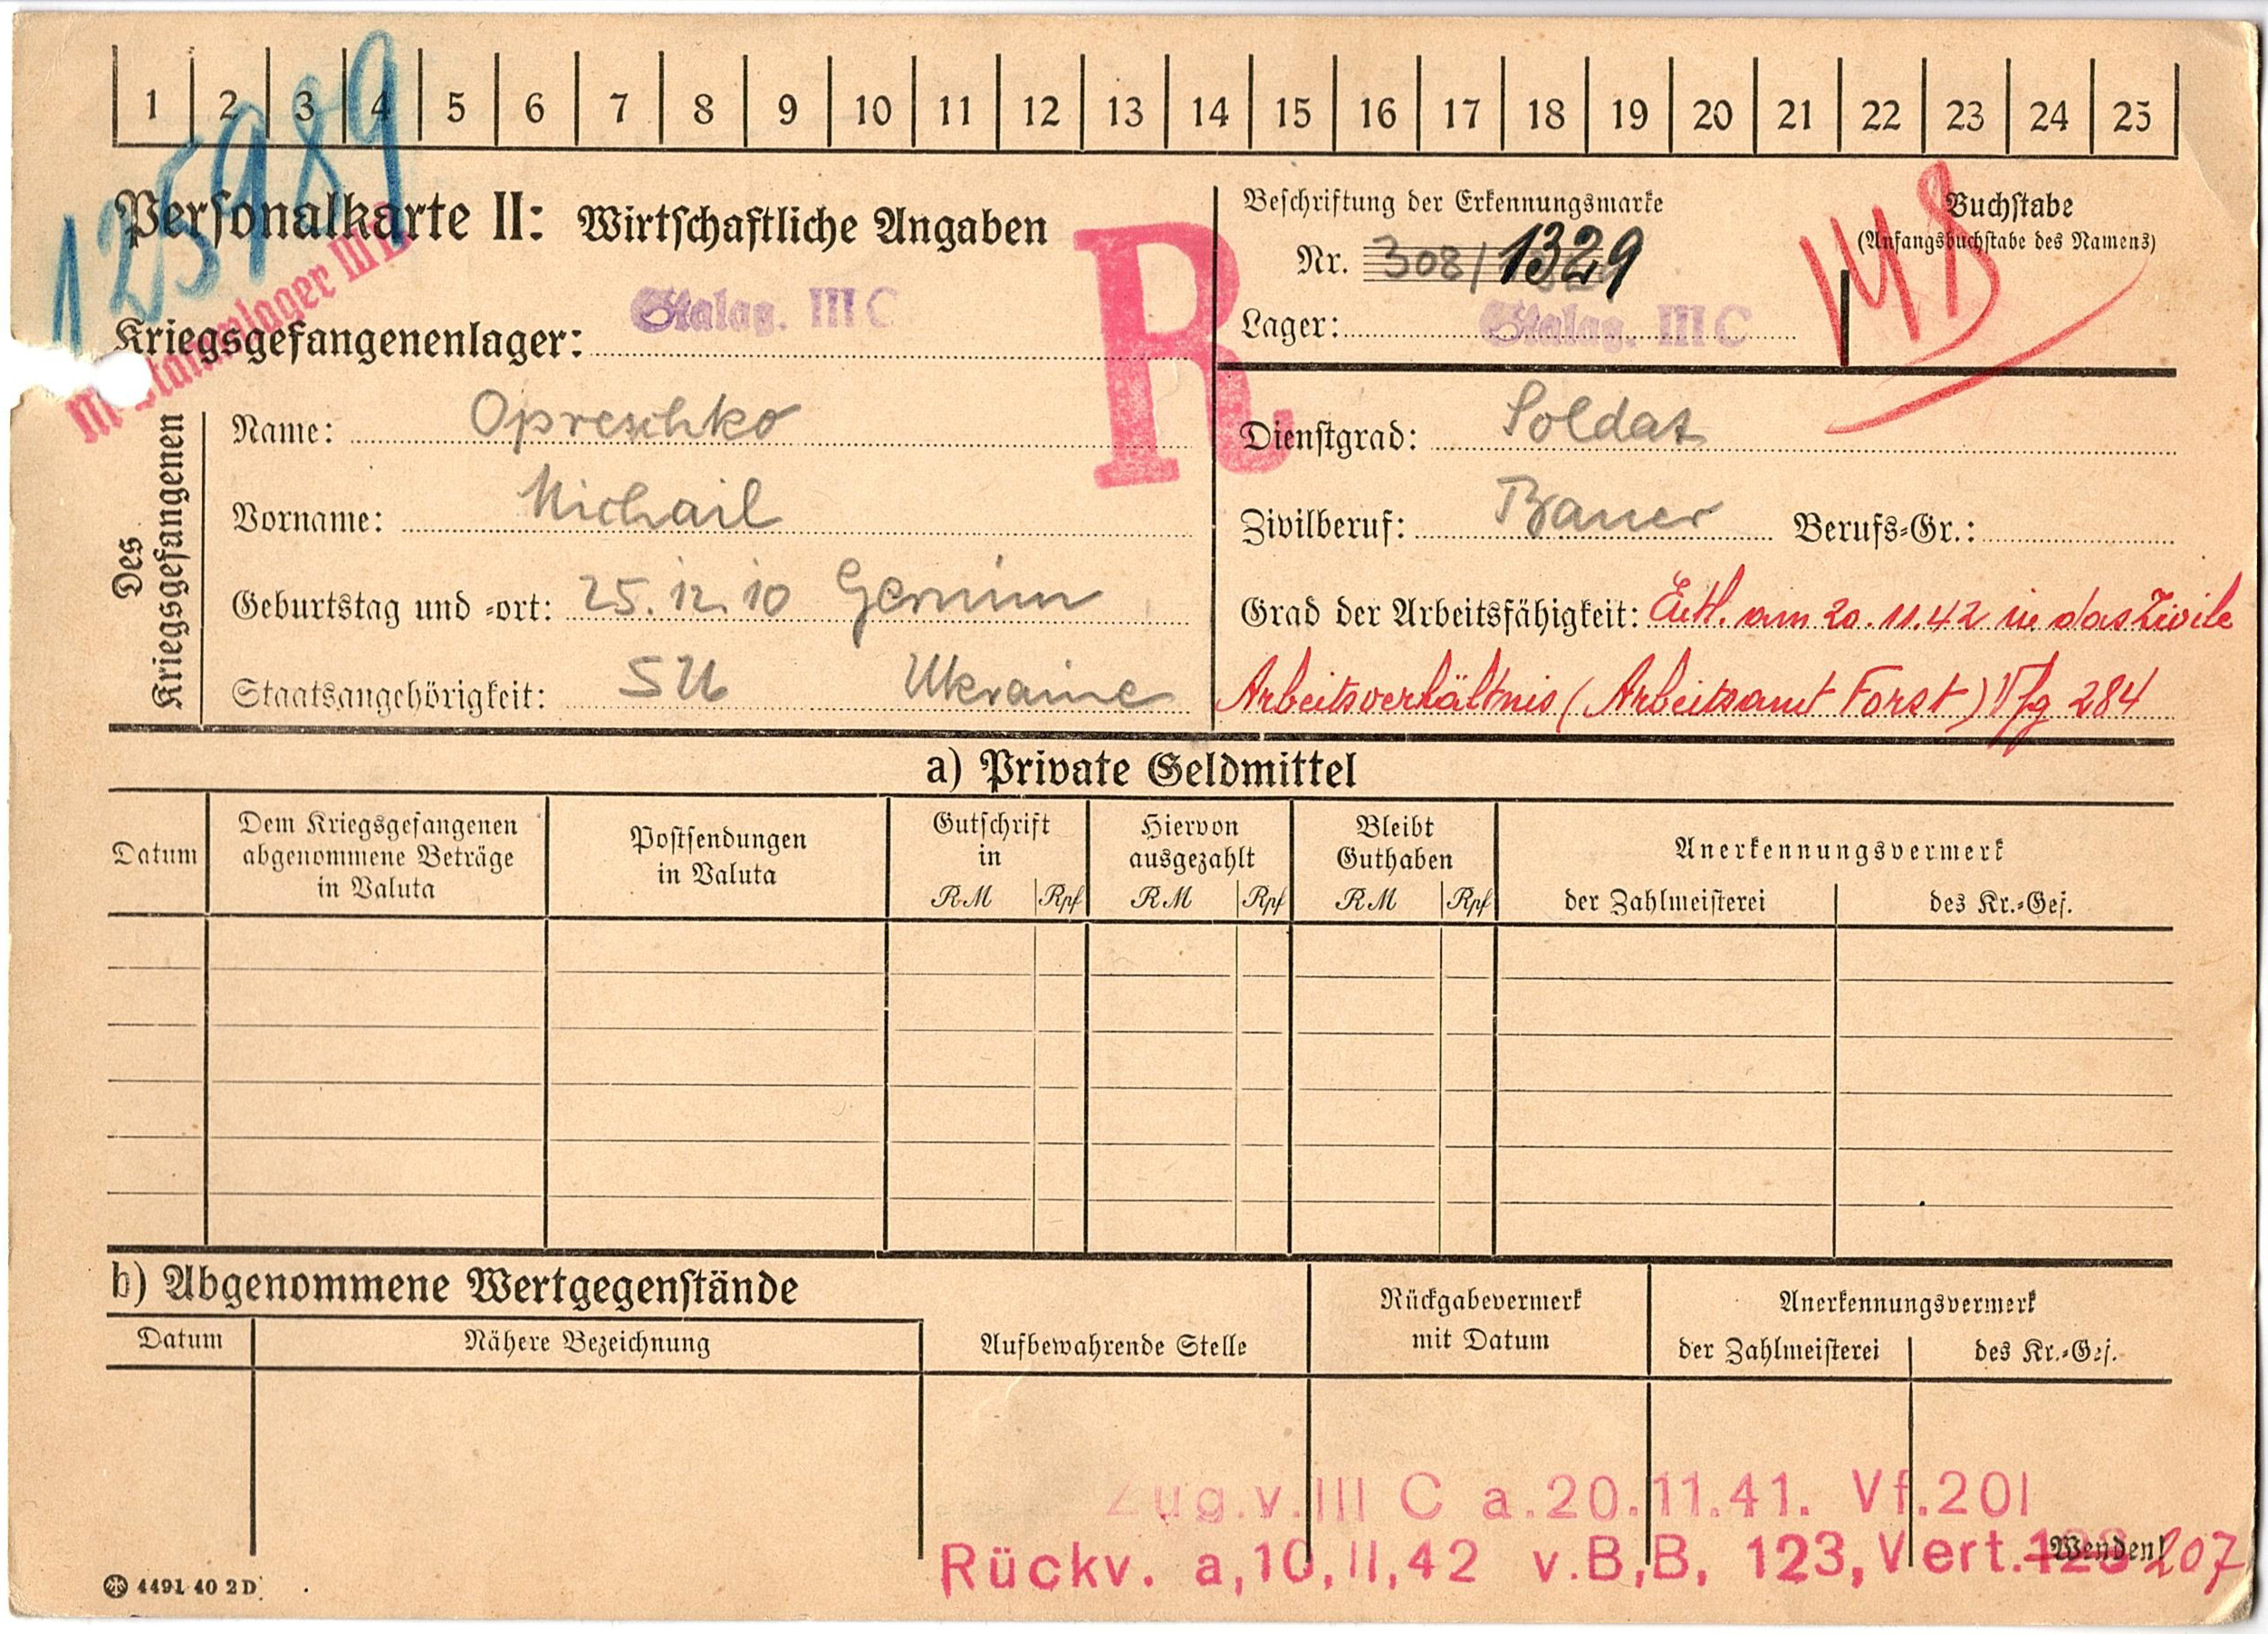 1 2 3 4 5 6 7 8 9 10 11 12 13 14 15 16 17 18 19 20 21 22 23 24 25
125989
Personalkarte II: Wirtschaftliche Angaben
R
Kriegsgefangenenlager: Stalag. III C
M-Stammlager III
Beschriftung der Erkennungsmarke
Nr. 308/1329
Lager: Stalag. III C
Buchstabe
(Anfangsbuchstabe des Namens)
Des Kriegsgefangenen
Name: Opreschko
Vorname: Michail
Geburtstag und -ort: 25.12.10
Staatsangehörigkeit: SU Ukraine
Dienstgrad: Soldat
Zivilberuf: Bauer Berufs-Gr.:
Grad der Arbeitsfähigkeit: Entl. am 20.11.42 in das Zivile
Arbeitsverhältnis (Arbeitsamt Forst) Vfg 284
a) Private Geldmittel
Datum
Dem Kriegsgefangenen
abgenommene Beträge
in Valuta
Postsendungen
in Valuta
Gutschrift
in
RM Rpf
Hiervon
ausgezahlt
RM Rpf
Bleibt
Guthaben
RM Rpf
Anerkennungsvermerk
der Zahlmeisterei des Kr.-Gef.
b) Abgenommene Wertgegenstände
Datum Nähere Bezeichnung
Aufbewahrende Stelle
Rückgabevermerk
mit Datum
Anerkennungsvermerk
der Zahlmeisterei des Kr.-Gef.
Zug.v.III C a.20.11.41. Vf.201
Rückv. a,10,11,42 v.B,B, 123,Vert.123 207
Wenden!
4491 40 2 D